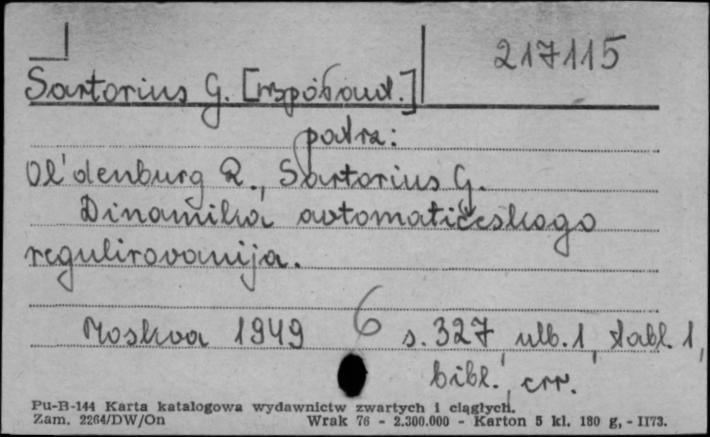 217115
Sartorius G. [współaut.]
patrz:
Ol'denburg R., Sartorius G.
Dinamika avtomatičeskogo
regulirovanija.
Moskva 1949 6 s. 327, ulb. 1, tabl. 1,
bibl., err.
Pu-B-144 Karta katalogowa wydawnictw zwartych i ciągłych.
Zam. 2264/DW/On Wrak 76 - 2.300.000 - Karton 5 kl. 180 g, - II73.